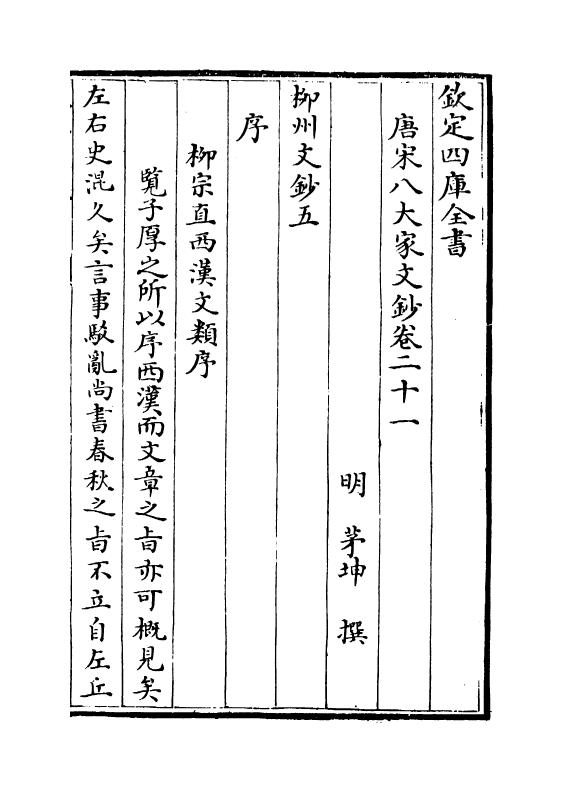 欽定四庫全書
唐宋八大家文鈔卷二十一
明 茅坤 撰
柳州文鈔五
序
柳宗直西漢文類序
覽子厚之所以序西漢而文章之旨亦可概見矣
左右史混久矣言事駮亂尚書春秋之旨不立自左丘